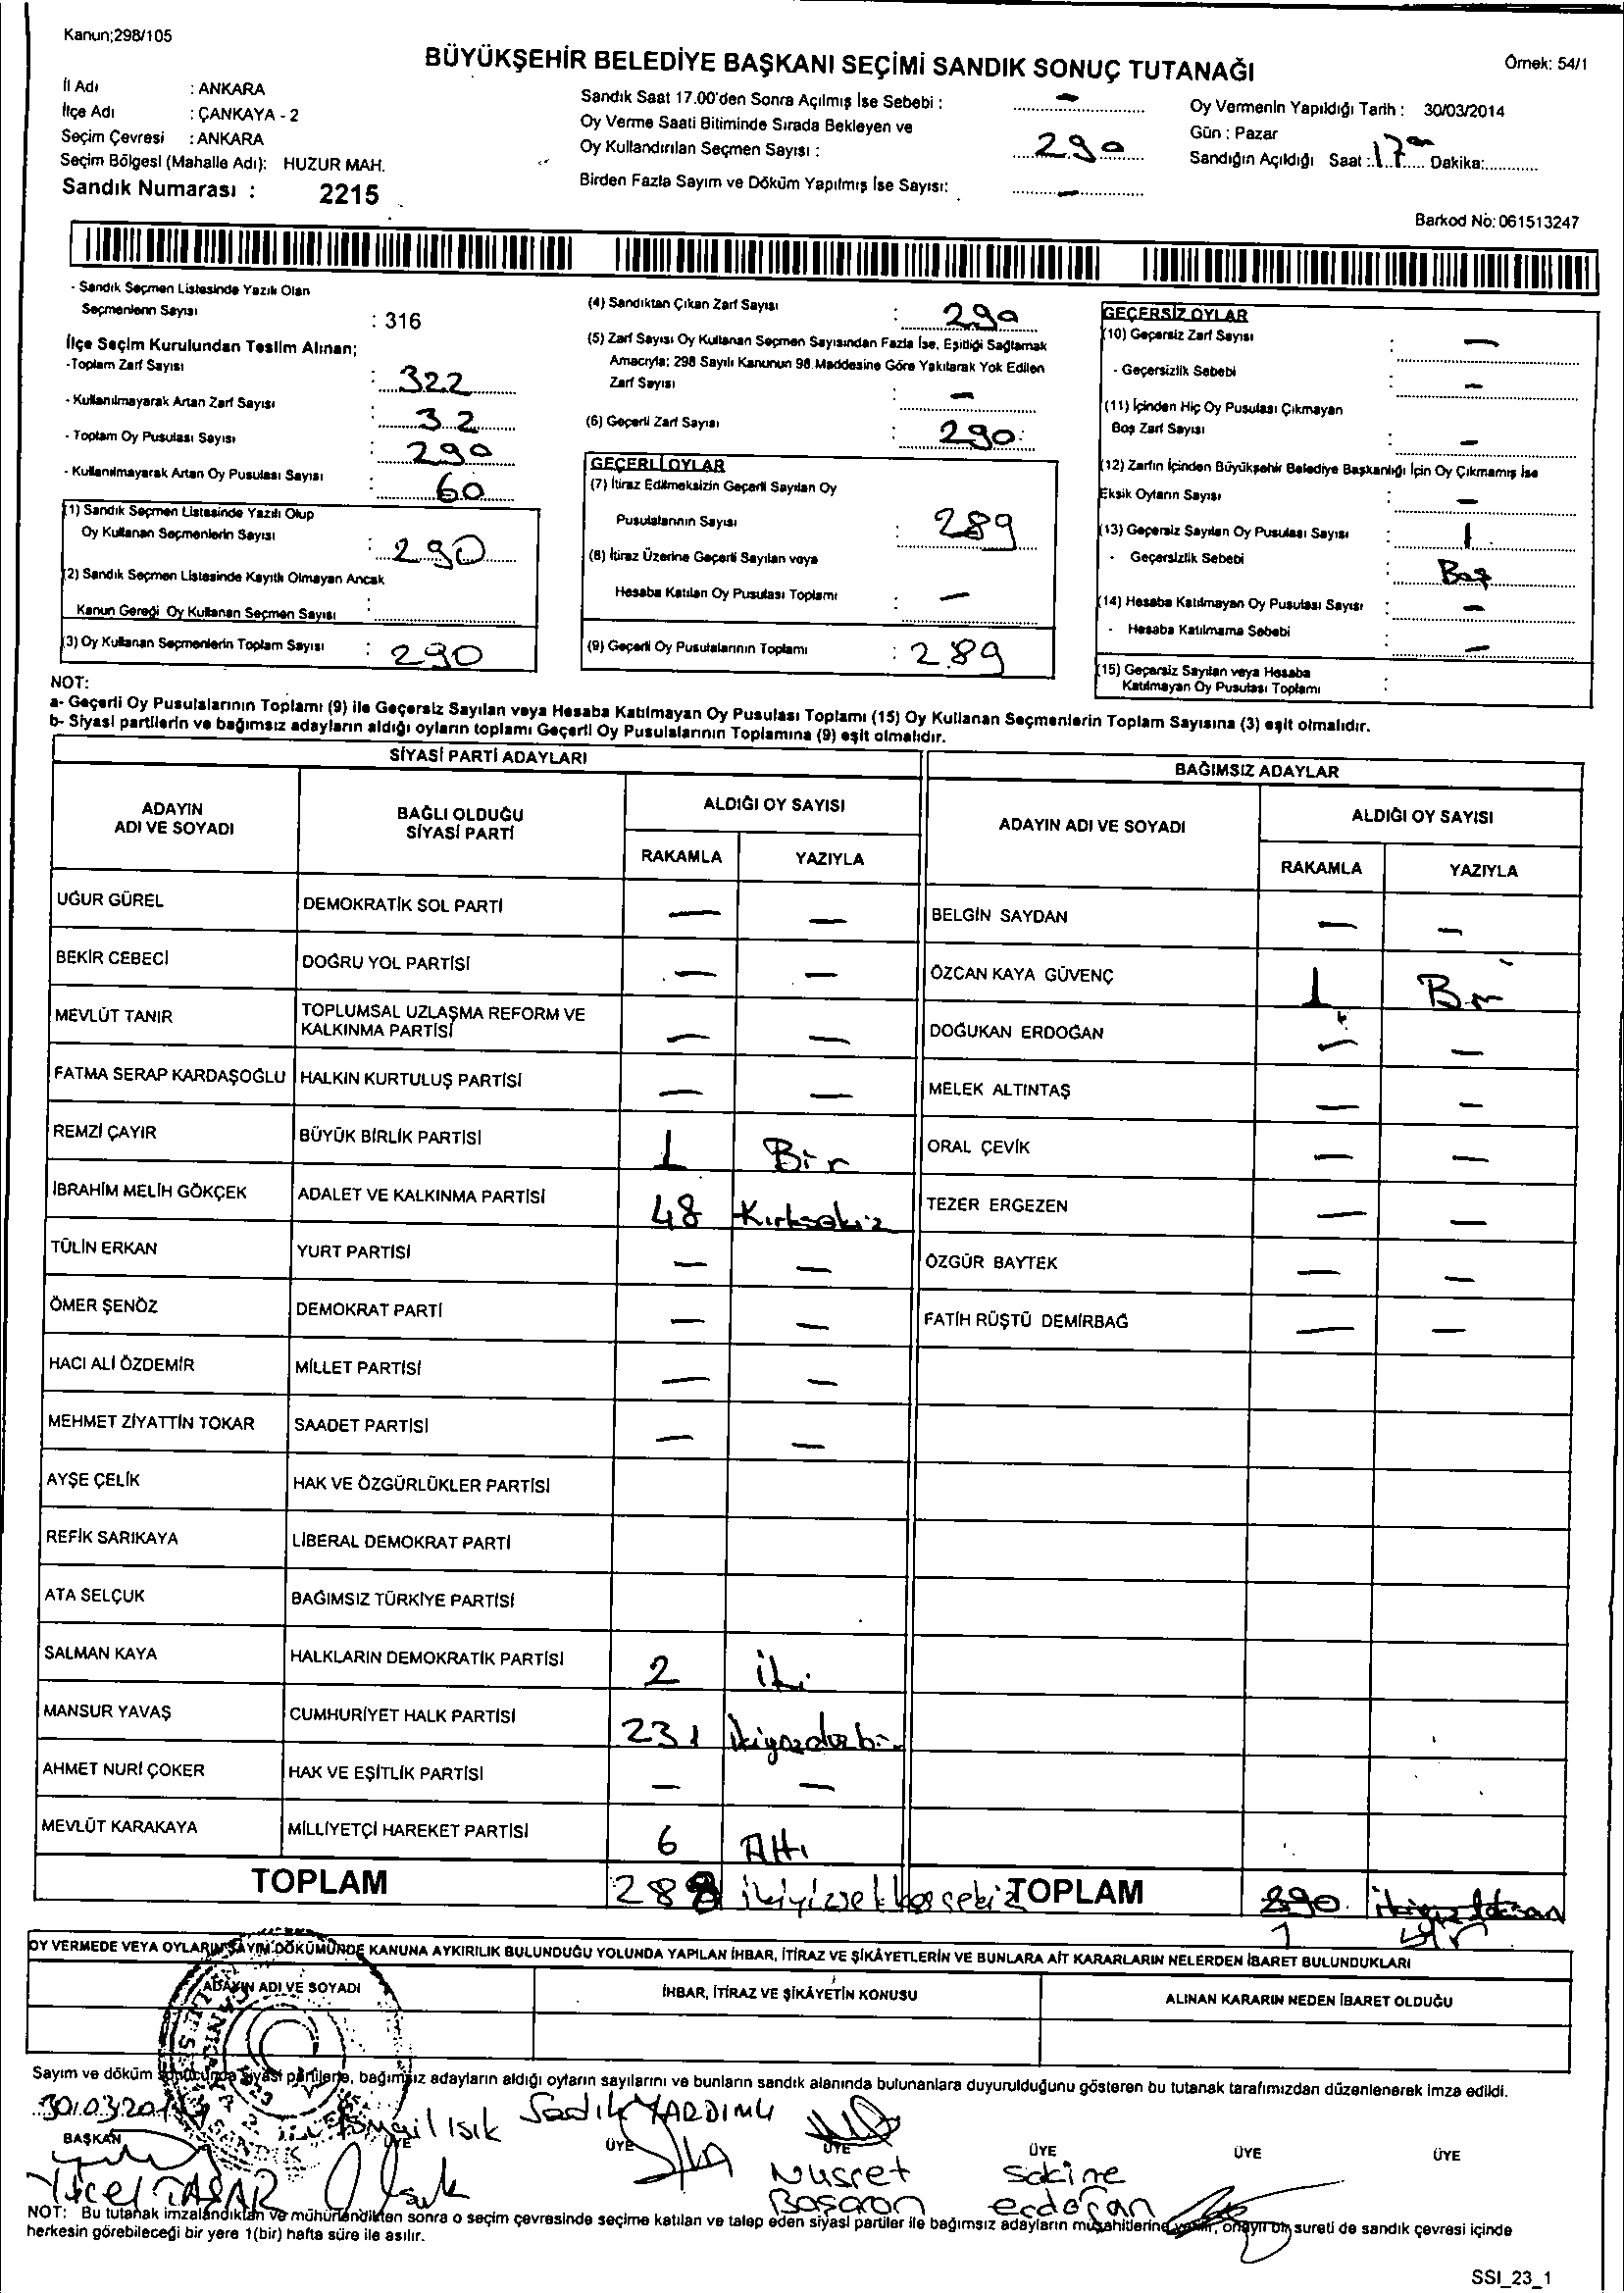 Kanun;298/105
BÜYÜKŞEHİR BELEDİYE BAŞKANI SEÇİMİ SANDIK SONUÇ TUTANAĞI
Örnek: 54/1
İl Adı : ANKARA
İlçe Adı : ÇANKAYA - 2
Seçim Çevresi : ANKARA
Seçim Bölgesi (Mahalle Adı): HUZUR MAH.
Sandık Numarası : 2215
Sandık Saat 17.00'den Sonra Açılmış İse Sebebi : —
Oy Verme Saati Bitiminde Sırada Bekleyen ve
Oy Kullandırılan Seçmen Sayısı : 290
Birden Fazla Sayım ve Döküm Yapılmış İse Sayısı: —
Oy Vermenin Yapıldığı Tarih : 30/03/2014
Gün : Pazar
Sandığın Açıldığı Saat : 17 00 Dakika:
Barkod No: 061513247
- Sandık Seçmen Listesinde Yazılı Olan
Seçmenlerin Sayısı : 316
İlçe Seçim Kurulundan Teslim Alınan;
-Toplam Zarf Sayısı : 322
- Kullanılmayarak Artan Zarf Sayısı : 32
- Toplam Oy Pusulası Sayısı : 290
- Kullanılmayarak Artan Oy Pusulası Sayısı : 60
(1) Sandık Seçmen Listesinde Yazılı Olup
Oy Kullanan Seçmenlerin Sayısı : 290
(2) Sandık Seçmen Listesinde Kayıtlı Olmayan Ancak
Kanun Gereği Oy Kullanan Seçmen Sayısı :
(3) Oy Kullanan Seçmenlerin Toplam Sayısı : 290
(4) Sandıktan Çıkan Zarf Sayısı : 290
(5) Zarf Sayısı Oy Kullanan Seçmen Sayısından Fazla İse, Eşitliği Sağlamak
Amacıyla; 298 Sayılı Kanunun 98.Maddesine Göre Yakılarak Yok Edilen
Zarf Sayısı : —
(6) Geçerli Zarf Sayısı : 290
GEÇERLİ OYLAR
(7) İtiraz Edilmeksizin Geçerli Sayılan Oy
Pusulalarının Sayısı : 289
(8) İtiraz Üzerine Geçerli Sayılan veya
Hesaba Katılan Oy Pusulası Toplamı : —
(9) Geçerli Oy Pusulalarının Toplamı : 289
GEÇERSİZ OYLAR
(10) Geçersiz Zarf Sayısı : —
- Geçersizlik Sebebi : —
(11) İçinden Hiç Oy Pusulası Çıkmayan
Boş Zarf Sayısı : —
(12) Zarfın İçinden Büyükşehir Belediye Başkanlığı İçin Oy Çıkmamış İse
Eksik Oyların Sayısı : —
(13) Geçersiz Sayılan Oy Pusulası Sayısı : 1
- Geçersizlik Sebebi : Boş
(14) Hesaba Katılmayan Oy Pusulası Sayısı : —
- Hesaba Katılmama Sebebi : —
(15) Geçersiz Sayılan veya Hesaba
Katılmayan Oy Pusulası Toplamı :
NOT:
a- Geçerli Oy Pusulalarının Toplamı (9) ile Geçersiz Sayılan veya Hesaba Katılmayan Oy Pusulası Toplamı (15) Oy Kullanan Seçmenlerin Toplam Sayısına (3) eşit olmalıdır.
b- Siyasi partilerin ve bağımsız adayların aldığı oyların toplamı Geçerli Oy Pusulalarının Toplamına (9) eşit olmalıdır.
SİYASİ PARTİ ADAYLARI
ADAYIN ADI VE SOYADI BAĞLI OLDUĞU SİYASİ PARTİ ALDIĞI OY SAYISI
RAKAMLA YAZIYLA
UĞUR GÜREL DEMOKRATİK SOL PARTİ — —
BEKİR CEBECİ DOĞRU YOL PARTİSİ — —
MEVLÜT TANIR TOPLUMSAL UZLAŞMA REFORM VE
KALKINMA PARTİSİ — —
FATMA SERAP KARDAŞOĞLU HALKIN KURTULUŞ PARTİSİ — —
REMZİ ÇAYIR BÜYÜK BİRLİK PARTİSİ 1 Bir
İBRAHİM MELİH GÖKÇEK ADALET VE KALKINMA PARTİSİ 48 Kırksekiz
TÜLİN ERKAN YURT PARTİSİ — —
ÖMER ŞENÖZ DEMOKRAT PARTİ — —
HACI ALİ ÖZDEMİR MİLLET PARTİSİ — —
MEHMET ZİYATTİN TOKAR SAADET PARTİSİ — —
AYŞE ÇELİK HAK VE ÖZGÜRLÜKLER PARTİSİ
REFİK SARIKAYA LİBERAL DEMOKRAT PARTİ
ATA SELÇUK BAĞIMSIZ TÜRKİYE PARTİSİ
SALMAN KAYA HALKLARIN DEMOKRATİK PARTİSİ 2 İki
MANSUR YAVAŞ CUMHURİYET HALK PARTİSİ 231 İkiyüzotuzbir
AHMET NURİ ÇOKER HAK VE EŞİTLİK PARTİSİ — —
MEVLÜT KARAKAYA MİLLİYETÇİ HAREKET PARTİSİ 6 Altı
TOPLAM 288 ikiyüzseksensekiz
BAĞIMSIZ ADAYLAR
ADAYIN ADI VE SOYADI ALDIĞI OY SAYISI
RAKAMLA YAZIYLA
BELGİN SAYDAN — —
ÖZCAN KAYA GÜVENÇ 1 Bir
DOĞUKAN ERDOĞAN — —
MELEK ALTINTAŞ — —
ORAL ÇEVİK — —
TEZER ERGEZEN — —
ÖZGÜR BAYTEK — —
FATİH RÜŞTÜ DEMİRBAĞ — —
TOPLAM 290 ikiyüzdoksan
1 bir
OY VERMEDE VEYA OYLARIN SAYIM DÖKÜMÜNDE KANUNA AYKIRILIK BULUNDUĞU YOLUNDA YAPILAN İHBAR, İTİRAZ VE ŞİKÂYETLERİN VE BUNLARA AİT KARARLARIN NELERDEN İBARET BULUNDUKLARI
ADAYIN ADI VE SOYADI İHBAR, İTİRAZ VE ŞİKÂYETİN KONUSU ALINAN KARARIN NEDEN İBARET OLDUĞU
Sayım ve döküm sonucunda siyasi partilerle, bağımsız adayların aldığı oyların sayılarını ve bunların sandık alanında bulunanlara duyurulduğunu gösteren bu tutanak tarafımızdan düzenlenerek imza edildi.
30.03.2014
BAŞKAN ÜYE ÜYE ÜYE ÜYE ÜYE ÜYE
Yücel TAŞAR
İsmail Işık
Sadık YARDIMLI
Nusret Başaran
Sakine erdoğan
NOT: Bu tutanak imzalandıktan ve mühürlendikten sonra o seçim çevresinde seçime katılan ve talep eden siyasi partiler ile bağımsız adayların müşahitlerine verilir, onaylı bir sureti de sandık çevresi içinde
herkesin görebileceği bir yere 1(bir) hafta süre ile asılır.
SSI_23_1